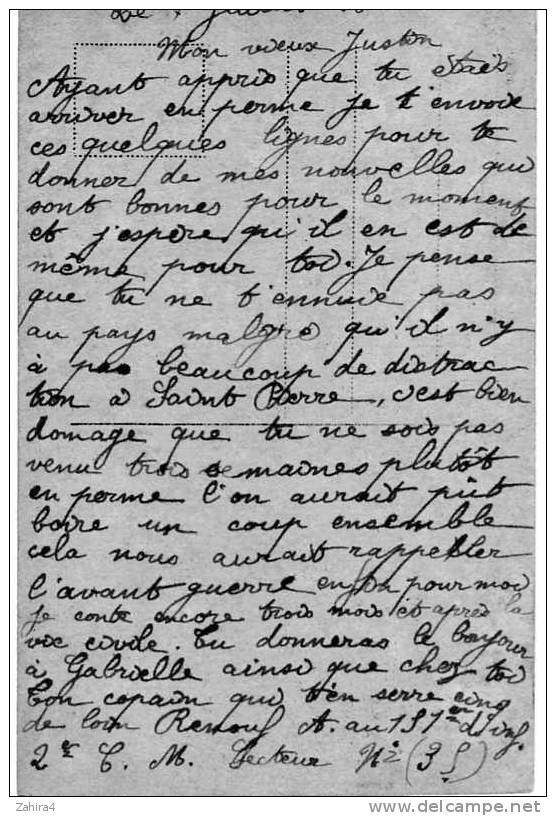 Le
Mon vieux Justin
Ayant appris que tu étais
arriver en perme je t'envoie
ces quelques lignes pour te
donner de mes nouvelles qui
sont bonnes pour le moment
et j'espère qu'il en est de
même pour toi. Je pense
que tu ne t'ennuie pas
au pays malgré qu'il n'y
à pas beaucoup de distrac
tion à Saint Pierre, c'est bien
domage que tu ne sois pas
venu trois semaines plutôt
en perme l'on aurait pût
boire un coup ensemble
cela nous aurait rappeller
l'avant guerre enfin pour moi
je conte encore trois mois et après la
vie civile. Tu donneras le bonjour
à Gabrielle ainsi que chez toi
Ton copain qui t'en serre cinq
de loin Renouf A. au 151 d'inf.
2e C. M. Secteur No (35)
Zahira4
delcampe.net